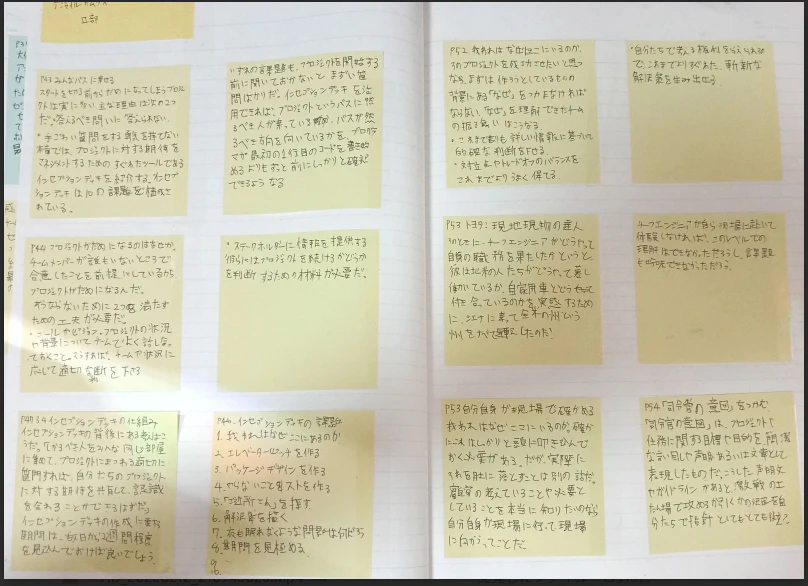 P43 みんなバスに乗せる
スタートを切る前からだめになってしまうプロジェ
クトは実に多い。主な理由は次の2つ
だ。答えるべき問いに答えられない、
・手ごわい質問をする勇気を持てない
本章では、プロジェクトに対する期待を
マネジメントするためのすぐれたツールである
インセプションデッキを紹介する。インセプ
ションデッキは10の課題で構成さ
れている。
いずれの課題も、プロジェクトを開始する
前に聞いておかないとまずい質
問ばかりだ。インセプションデッキを活
用できれば、プロジェクトというバスに然
るべき人が乗っているか、バスが然
るべき方向を向いているかを、プログラ
マが最初の1行目のコードを書き始
めるよりもずっと前にしっかりと確認
できるようなる
P44 プロジェクトがだめになるのはなぜか、
チームメンバーが誰もいないところで
合意したことを前提にしているから
プロジェクトがだめになるんだ。
そうならないために2つを満たす
ための工夫が必要だ。
・ゴールやビジョン、プロジェクトの状況
や背景についてチームでよく話しな
っておくこと。そうすれば、チームが状況に
応じて適切な判断を下せる
・ステークホルダーに情報を提供する
彼らにはプロジェクトを続けるかどうか
を判断するための材料が必要だ。
3.4 インセプションデッキの仕組み
インセプションデッキの背後にある考えはこ
うだ。「しかるべき人をみんな同じ部屋
に集めて、プロジェクトにまつわる適切に
質問すれば、自分たちのプロジェクト
に対する期待を共有して、認識
を合わることができるはずだ」。
インセプションデッキの作成に要する
期間は、数日から2週間程度
を見込んでおけば良いでしょう。
P46. インセプションデッキの課題
1. 我われはなぜここにあるのか
2. エレベーターピッチを作る
3. パッケージデザインを作る
4. やらないことリストを作る
5.「ご近所さん」を探す
6. 解決案を描く
7. 夜も眠れなくなるような問題は何だろう
8. 期間を見極める
9.
P52 我われはなぜここにいるのか、
そのプロジェクトを成功させたいと思う
なら、まずは作ろうとしているものの
背景にある「なぜ」をつかまなければ
ならない。「なぜ」を理解できたチーム
の振る舞いはこうなる。
・これまでよりも、詳しい情報に基づいて
的確な判断を下せる。
・対立点やトレードオフのバランスを
これまでよりうまく保てる
・自分たちで考える権利を与えられるの
で、これまでよりすぐれた、斬新な
解決策を生み出せる。
P53 トヨタ:現地現物の達人
このときに、チーフエンジニアがどうやって
自身の職務を果たしたかというと、
彼は北米の人たちがどうやって暮し
働いているか、自家用車とどうやって
付き合っているのかを実感するため
に、シエナに乗って全米の州という
州をすべて運転したのだ!
チーフエンジニアが自ら現場に赴いて
体験しなければ、このレベルでの
理解はできなかっただろうし、課題
も吟味できなかっただろう。
P53 自分自身が現場で確かめる
我われはなぜここにいるのか、確か
にこれはしっかりと頭に叩き込んで
おく必要がある。だが、実際に
それを肚に落とすとは別の話だ。
顧客の考えていることや必要と
していることを本当に知りたいのなら
自分自身が現場に行って現場
に向かうってことだ。
P54「司令官の意図」をつかむ
「司令官の意図」は、プロジェクト
や任務に関する目標や目的を簡潔
な言い回し、声明あるいは文章として
表現したものだ。こうした声明文
やガイドラインがあると、激戦の土
たん場で攻めるか引くかの決定を自
分たちで指針としてもとても役立つ